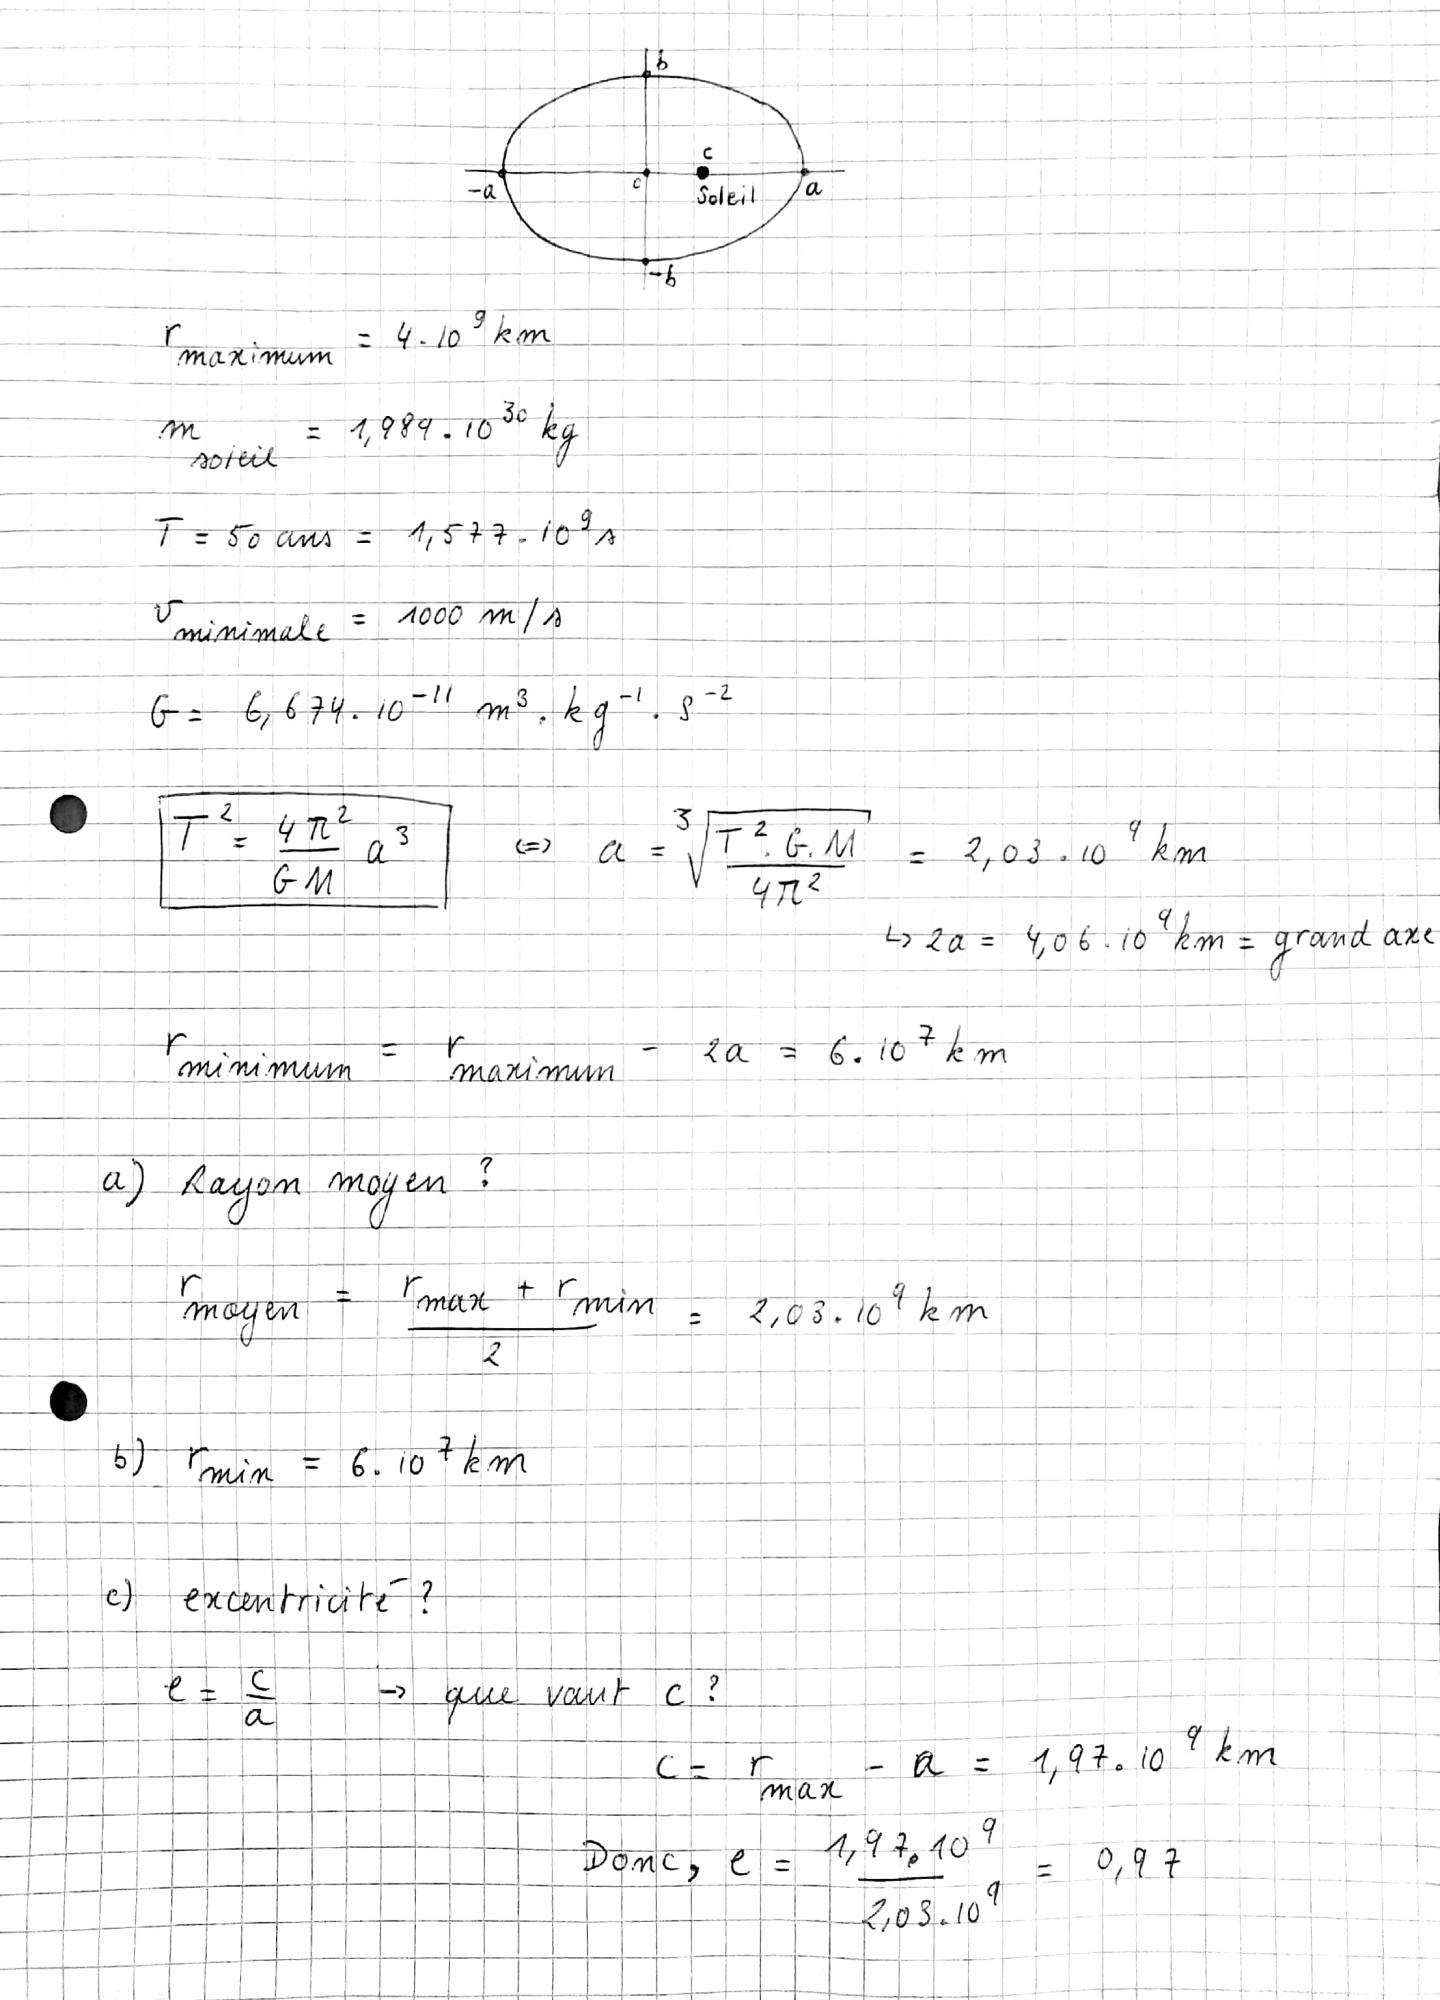 b
c
-a
o
Soleil
a
-b
r maximum = 4.10⁹ km
m soleil = 1,989.10³⁰ kg
T = 50 ans = 1,577.10⁹ s
v minimale = 1000 m/s
G = 6,674.10⁻¹¹ m³.kg⁻¹.s⁻²
T² = 4π²/GM a³ <=> a = ³√(T².G.M/4π²) = 2,03.10⁹ km
↳ 2a = 4,06.10⁹ km = grand axe
r minimum = r maximum - 2a = 6.10⁷ km
a) Rayon moyen ?
r moyen = (r max + r min)/2 = 2,03.10⁹ km
b) r min = 6.10⁷ km
c) excentricité ?
e = c/a → que vaut c ?
c = r max - a = 1,97.10⁹ km
Donc, e = 1,97.10⁹/2,03.10⁹ = 0,97